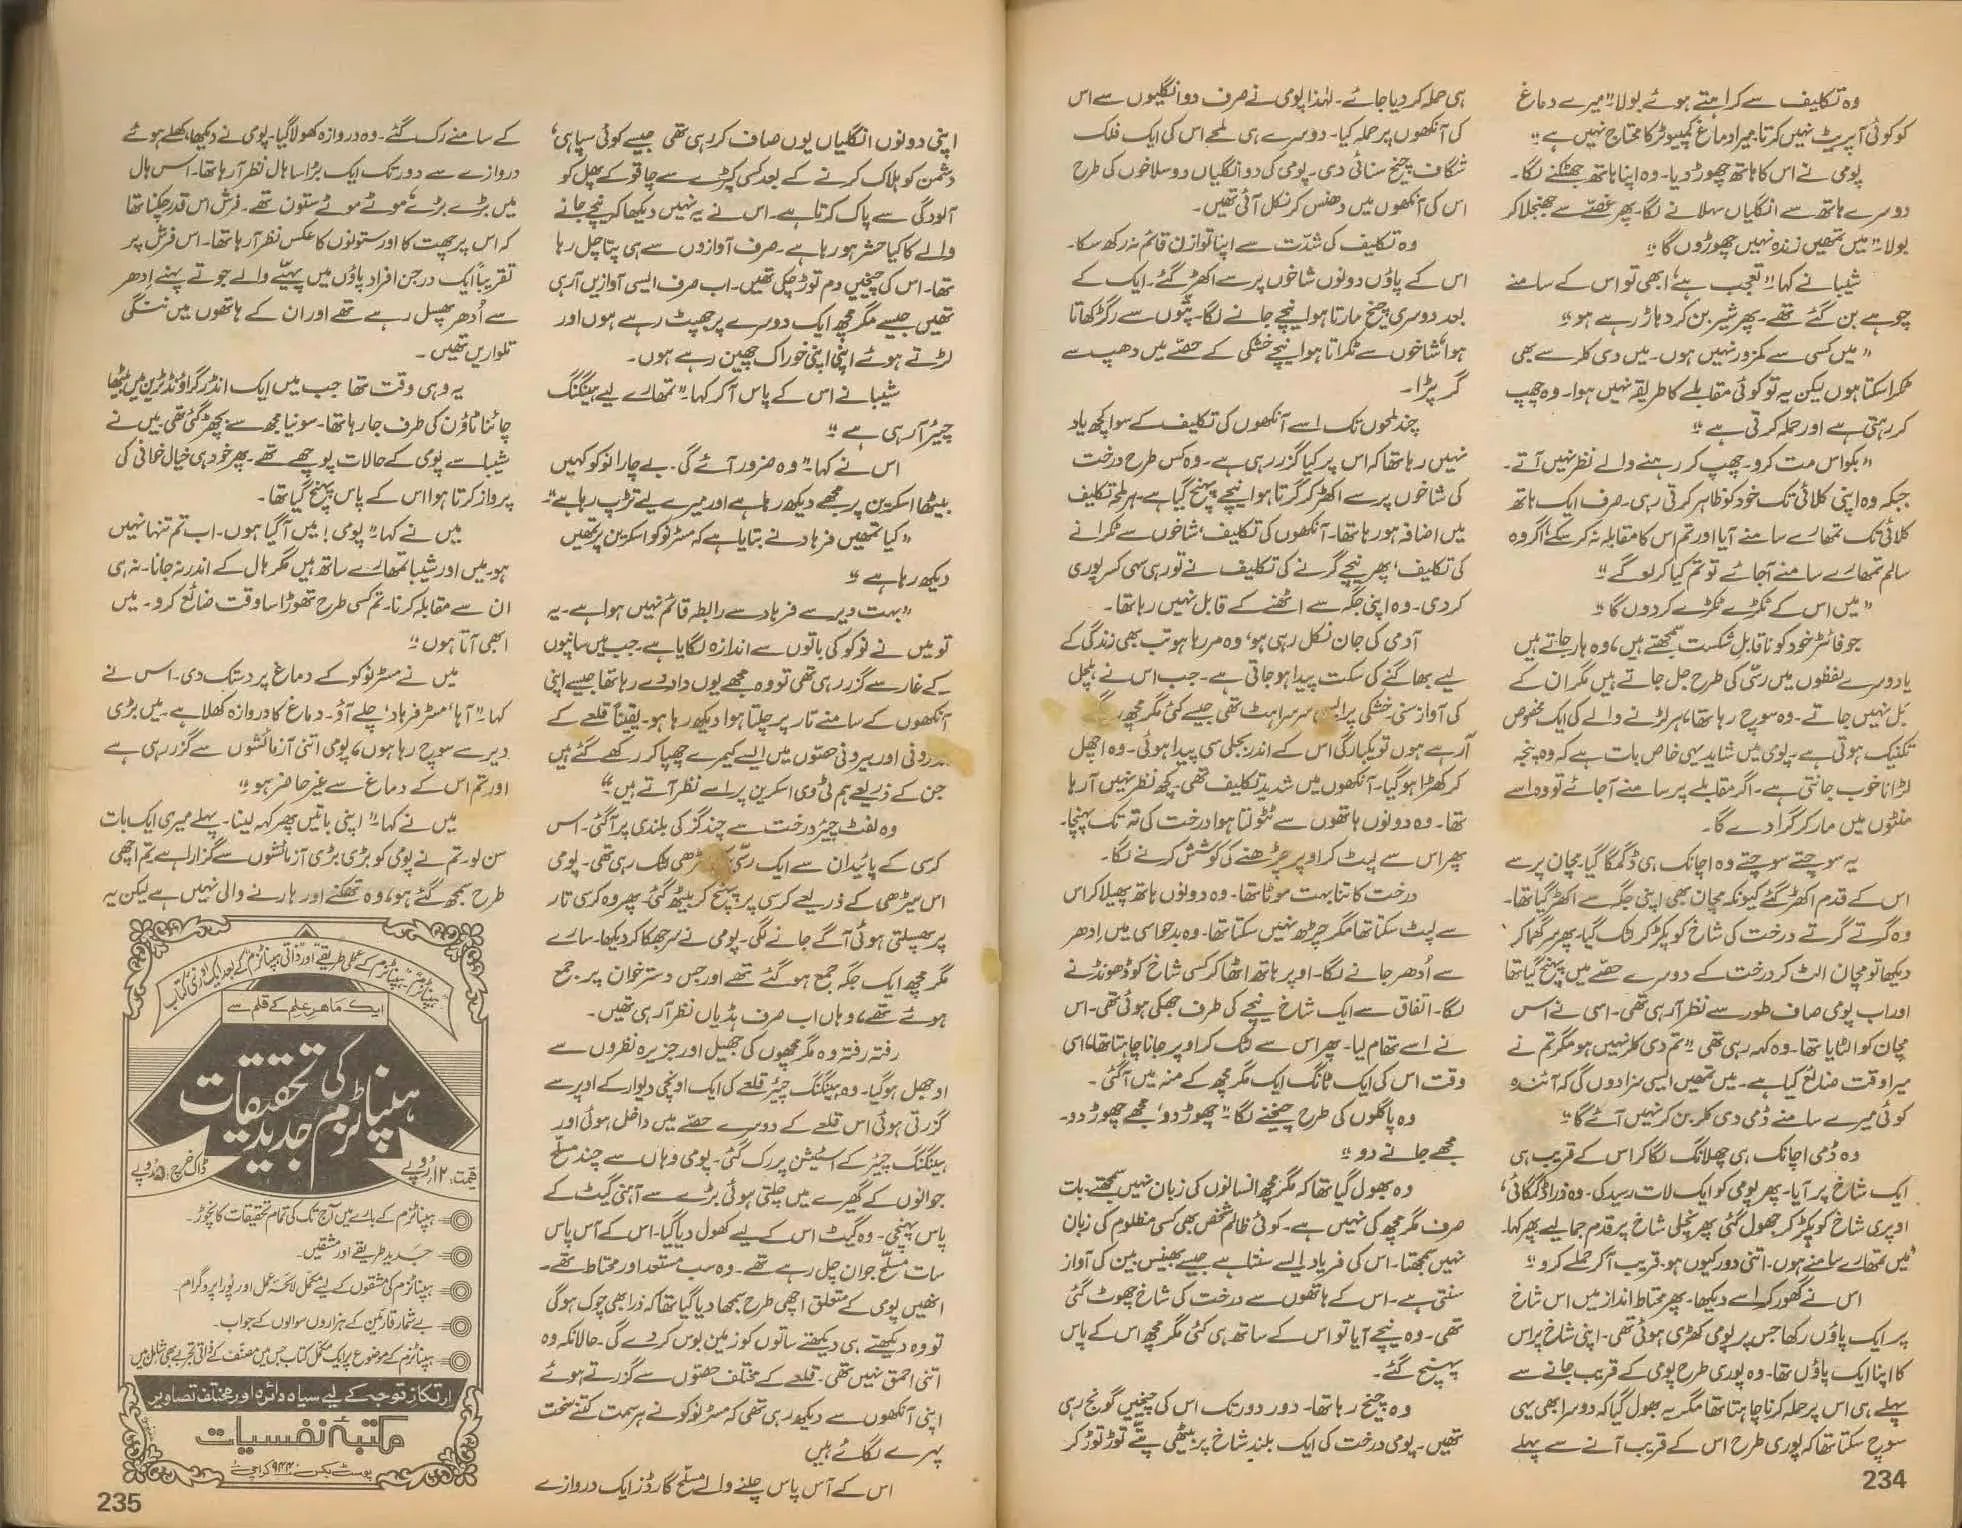 وہ تکلیف سے کراہتے ہوئے بولا۔ "میرے دماغ
کو کوئی آپریٹ نہیں کرتا، میرا دماغ کمپیوٹر کا محتاج نہیں ہے"
پومی نے اس کا ہاتھ چھوڑ دیا۔ وہ اپنا ہاتھ جھٹکنے لگا۔
دوسرے ہاتھ سے انگلیاں سہلانے لگا۔ پھر غصّے سے جھنجلا کر
بولا۔ "میں تمھیں زندہ نہیں چھوڑوں گا"
شیبا نے کہا۔ "تعجب ہے، ابھی تو اس کے سامنے
چوہے بن گئے تھے۔ پھر شیر بن کر دہاڑ رہے ہو"
"میں کسی سے کمزور نہیں ہوں۔ میں دی کلر سے بھی
ٹکرا سکتا ہوں لیکن یہ تو کوئی مقابلے کا طریقہ نہیں ہوا۔ وہ چھپ
کر رہتی ہے اور حملہ کرتی ہے"
"بکواس مت کرو۔ چھپ کر رہنے والے نظر نہیں آتے۔
جبکہ وہ اپنی کلائی تک خود کو ظاہر کرتی رہی۔ صرف ایک ہاتھ
کلائی تک تمھارے سامنے آیا اور تم اس کا مقابلہ نہ کر سکے، اگر وہ
سالم تمھارے سامنے آجائے تو تم کیا کر لو گے"
"میں اس کے ٹکڑے ٹکڑے کر دوں گا"
جو فائٹر خود کو ناقابلِ شکست سمجھتے ہیں، وہ ہار جاتے ہیں
یا دوسرے لفظوں میں رسّی کی طرح جل جاتے ہیں مگر ان کے
بَل نہیں جاتے۔ وہ سوچ رہا تھا، ہر لڑنے والے کی ایک مخصوص
تکنیک ہوتی ہے۔ پومی میں شاید یہی خاص بات ہے کہ وہ پنجہ
لڑانا خوب جانتی ہے۔ اگر مقابلے پر سامنے آجائے تو وہ اسے
منٹوں میں مار کر گرا دے گا۔
یہ سوچتے سوچتے وہ اچانک ہی ڈگمگا گیا۔ مچان پر سے
اس کے قدم اکھڑ گئے کیونکہ مچان بھی اپنی جگہ سے اکھڑ گیا تھا۔
وہ گرتے گرتے درخت کی شاخ کو پکڑ کر لٹک گیا۔ پھر سر گھما کر
دیکھا تو مچان الٹ کر درخت کے دوسرے حصّے میں پہنچ گیا تھا
اور اب پومی صاف طور سے نظر آرہی تھی۔ اسی نے اس
مچان کو الٹایا تھا۔ وہ کہہ رہی تھی "تم دی کلر نہیں ہو مگر تم نے
میرا وقت ضائع کیا ہے۔ میں تمھیں ایسی سزا دوں گی کہ آئندہ
کوئی میرے سامنے ڈمی دی کلر بن کر نہیں آئے گا"
وہ ڈمی اچانک ہی چھلانگ لگا کر اس کے قریب ہی
ایک شاخ پر آیا۔ پھر پومی کو ایک لات رسید کی۔ وہ ذرا ڈگمگائی،
اوپری شاخ کو پکڑ کر جھول گئی پھر نچلی شاخ پر قدم جما لیے پھر کہا۔
"میں تمھارے سامنے ہوں۔ اتنی دور کیوں ہو۔ قریب آکر حملے کرو"
اس نے گھور کر اسے دیکھا۔ پھر محتاط انداز میں اس شاخ
پر ایک پاؤں رکھا جس پر پومی کھڑی ہوئی تھی۔ اپنی شاخ پر اس
کا اپنا ایک پاؤں تھا۔ وہ پوری طرح پومی کے قریب جانے سے
پہلے ہی اس پر حملہ کرنا چاہتا تھا مگر یہ بھول گیا کہ دوسرا بھی یہی
سوچ سکتا تھا کہ پوری طرح اس کے قریب آنے سے پہلے
234
ہی حملہ کر دیا جائے۔ لہٰذا پومی نے صرف دو انگلیوں سے اس
کی آنکھوں پر حملہ کیا۔ دوسرے ہی لمحے اس کی ایک فلک
شگاف چیخ سنائی دی۔ پومی کی دو انگلیاں دو سلاخوں کی طرح
اس کی آنکھوں میں دھنس کر نکل آئی تھیں۔
وہ تکلیف کی شدّت سے اپنا توازن قائم نہ رکھ سکا۔
اس کے پاؤں دونوں شاخوں پر سے اکھڑ گئے۔ ایک کے
بعد دوسری چیخ مارتا ہوا نیچے جانے لگا۔ پتّوں سے رگڑ کھاتا
ہوا، شاخوں سے ٹکراتا ہوا نیچے خشکی کے حصّے میں دھپ سے
گر پڑا۔
چند لمحوں تک اسے آنکھوں کی تکلیف کے سوا کچھ یاد
نہیں رہا تھا کہ اس پر کیا گزر رہی ہے۔ وہ کس طرح درخت
کی شاخوں پر سے اکھڑ کر گرتا ہوا نیچے پہنچ گیا ہے۔ ہر لمحہ تکلیف
میں اضافہ ہو رہا تھا۔ آنکھوں کی تکلیف، شاخوں سے ٹکرانے
کی تکلیف، پھر نیچے گرنے کی تکلیف نے تو رہی سہی کسر پوری
کر دی۔ وہ اپنی جگہ سے اٹھنے کے قابل نہیں رہا تھا۔
آدمی کی جان نکل رہی ہو، وہ مر رہا ہو تب بھی زندگی کے
لیے بھاگنے کی سکت پیدا ہو جاتی ہے۔ جب اس نے ہلچل
کی آواز سنی۔ خشکی پر ایسی سرسراہٹ تھی جیسے کئی مگرمچھ رینگتے
آرہے ہوں تو یکبارگی اس کے اندر بجلی سی پیدا ہوئی۔ وہ اچھل
کر کھڑا ہو گیا۔ آنکھوں میں شدید تکلیف تھی۔ کچھ نظر نہیں آرہا
تھا۔ وہ دونوں ہاتھوں سے ٹٹولتا ہوا درخت کی تہ تک پہنچا۔
پھر اس سے لپٹ کر اوپر چڑھنے کی کوشش کرنے لگا۔
درخت کا تنا بہت موٹا تھا۔ وہ دونوں ہاتھ پھیلا کر اس
سے لپٹ سکتا تھا مگر چڑھ نہیں سکتا تھا۔ وہ بدحواسی میں اِدھر
سے اُدھر جانے لگا۔ اوپر ہاتھ اٹھا کر کسی شاخ کو ڈھونڈنے
لگا۔ اتفاق سے ایک شاخ نیچے کی طرف جھکی ہوئی تھی۔ اس
نے اسے تھام لیا۔ پھر اس سے لٹک کر اوپر جانا چاہتا تھا، اسی
وقت اس کی ایک ٹانگ ایک مگرمچھ کے منہ میں آگئی۔
وہ پاگلوں کی طرح چیخنے لگا۔ "چھوڑ دو، مجھے چھوڑ دو۔
مجھے جانے دو"
وہ بھول گیا تھا کہ مگرمچھ انسانوں کی زبان نہیں سمجھتے۔ بات
صرف مگرمچھ کی نہیں ہے۔ کوئی ظالم شخص بھی کسی مظلوم کی زبان
نہیں سمجھتا۔ اس کی فریاد ایسے سنتا ہے جیسے بھینس بین کی آواز
سنتی ہے۔ اس کے ہاتھوں سے درخت کی شاخ چھوٹ گئی
تھی۔ وہ نیچے آیا تو اس کے ساتھ ہی کئی مگرمچھ اس کے پاس
پہنچ گئے۔
وہ چیخ رہا تھا۔ دور دور تک اس کی چیخیں گونج رہی
تھیں۔ پومی درخت کی ایک بلند شاخ پر بیٹھی پتّے توڑ توڑ کر
اپنی دونوں انگلیاں یوں صاف کر رہی تھی جیسے کوئی سپاہی،
دشمن کو ہلاک کرنے کے بعد کسی کپڑے سے چاقو کے پھل کو
آلودگی سے پاک کرتا ہے۔ اس نے یہ نہیں دیکھا کہ نیچے جانے
والے کا کیا حشر ہو رہا ہے۔ صرف آوازوں سے ہی پتا چل رہا
تھا۔ اس کی چیخیں دم توڑ چکی تھیں۔ اب صرف ایسی آوازیں آرہی
تھیں جیسے مگرمچھ ایک دوسرے پر جھپٹ رہے ہوں اور
لڑتے ہوئے اپنی اپنی خوراک چھین رہے ہوں۔
شیبا نے اس کے پاس آکر کہا۔ "تمھارے لیے ہینگنگ
چیئر آرہی ہے"
اس نے کہا۔ "وہ ضرور آئے گی۔ بے چارا نوکو کہیں
بیٹھا اسکرین پر مجھے دیکھ رہا ہے اور میرے لیے تڑپ رہا ہے"
"کیا تمھیں فرہاد نے بتایا ہے کہ مسٹر نوکو اسکرین پر تمھیں
دیکھ رہا ہے"
"بہت دیر سے فرہاد سے رابطہ قائم نہیں ہوا ہے۔ یہ
تو میں نے نوکو کی باتوں سے اندازہ لگایا ہے۔ جب میں سانپوں
کے غار سے گزر رہی تھی تو وہ مجھے یوں داد دے رہا تھا جیسے اپنی
آنکھوں کے سامنے تار پر چلتا ہوا دیکھ رہا ہو۔ یقیناً قلعے کے
اندرونی اور بیرونی حصّوں میں ایسے کیمرے چھپا کر رکھے گئے ہیں
جن کے ذریعے ہم ٹی وی اسکرین پر اسے نظر آتے ہیں"
وہ لفٹ چیئر درخت سے چند گز کی بلندی پر آگئی۔ اس
کرسی کے پائیدان سے ایک رسّی کی سیڑھی لٹک رہی تھی۔ پومی
اس سیڑھی کے ذریعے کرسی پر پہنچ کر بیٹھ گئی۔ پھر وہ کرسی تار
پر پھسلتی ہوئی آگے جانے لگی۔ پومی نے سر جھکا کر دیکھا۔ سارے
مگرمچھ ایک جگہ جمع ہو گئے تھے اور جس دسترخوان پر جمع
ہوئے تھے، وہاں اب صرف ہڈیاں نظر آرہی تھیں۔
رفتہ رفتہ وہ مگرمچھوں کی جھیل اور جزیرہ نظروں سے
اوجھل ہو گیا۔ وہ ہینگنگ چیئر قلعے کی ایک اونچی دیوار کے اوپر سے
گزرتی ہوئی اس قلعے کے دوسرے حصّے میں داخل ہوئی اور
ہینگنگ چیئر کے اسٹیشن پر رک گئی۔ پومی وہاں سے چند مسلّح
جوانوں کے گھیرے میں چلتی ہوئی بڑے سے آہنی گیٹ کے
پاس پہنچی۔ وہ گیٹ اس کے لیے کھول دیا گیا۔ اس کے آس پاس
سات مسلّح جوان چل رہے تھے۔ وہ سب مستعد اور محتاط تھے۔
انھیں پومی کے متعلق اچھی طرح سمجھا دیا گیا تھا کہ ذرا بھی چوک ہو گی
تو وہ دیکھتے ہی دیکھتے ساتوں کو زمین بوس کر دے گی۔ حالانکہ وہ
اتنی احمق نہیں تھی۔ قلعے کے مختلف حصّوں سے گزرتے ہوئے
اپنی آنکھوں سے دیکھ رہی تھی کہ مسٹر نوکو نے ہر سمت کتنے سخت
پہرے لگائے ہیں
اس کے آس پاس چلنے والے مسلّح گارڈز ایک دروازے
کے سامنے رک گئے۔ وہ دروازہ کھولا گیا۔ پومی نے دیکھا، کھلے ہوئے
دروازے سے دور تک ایک بڑا سا ہال نظر آرہا تھا۔ اس ہال
میں بڑے بڑے، موٹے موٹے ستون تھے۔ فرش اس قدر چکنا تھا
کہ اس پر چھت کا اور ستونوں کا عکس نظر آرہا تھا۔ اس فرش پر
تقریباً ایک درجن افراد پاؤں میں پہیّے والے جوتے پہنے اِدھر
سے اُدھر پھسل رہے تھے اور ان کے ہاتھوں میں ننگی
تلواریں تھیں۔
یہ وہی وقت تھا جب میں ایک انڈر گراؤنڈ ٹرین میں بیٹھا
چائنا ٹاؤن کی طرف جا رہا تھا۔ سونیا مجھ سے بچھڑ گئی تھی۔ میں نے
شیبا سے پومی کے حالات پوچھے تھے۔ پھر خود ہی خیال خوانی کی
پرواز کرتا ہوا اس کے پاس پہنچ گیا تھا۔
میں نے کہا۔ "پومی! میں آگیا ہوں۔ اب تم تنہا نہیں
ہو۔ میں اور شیبا تمھارے ساتھ ہیں مگر ہال کے اندر نہ جانا۔ نہ ہی
ان سے مقابلہ کرنا۔ تم کسی طرح تھوڑا سا وقت ضائع کرو۔ میں
ابھی آتا ہوں"
میں نے مسٹر نوکو کے دماغ پر دستک دی۔ اس نے
کہا۔ "آہا، مسٹر فرہاد، چلے آؤ۔ دماغ کا دروازہ کھلا ہے۔ میں بڑی
دیر سے سوچ رہا ہوں، پومی اتنی آزمائشوں سے گزر رہی ہے
اور تم اس کے دماغ سے غیر حاضر ہو"
میں نے کہا۔ "اپنی باتیں پھر کہہ لینا۔ پہلے میری ایک بات
سن لو۔ تم نے پومی کو بڑی بڑی آزمائشوں سے گزارا ہے۔ تم اچھی
طرح سمجھ گئے ہو، وہ تھکنے اور ہارنے والی نہیں ہے لیکن یہ
ہپناٹزم، ہپناٹزم کے عملی طریقے اور ذاتی ہپناٹزم کے بعد ایک اور نئی کتاب
ایک ماہرِ علم کے قلم سے
ہپناٹزم کی جدید تحقیقات
قیمت: ۱۲ روپے
ڈاک خرچ: ۵ روپے
ہپناٹزم کے بارے میں آج تک کی تمام تحقیقات کا نچوڑ۔
جدید طریقے اور مشقیں۔
ہپناٹزم کی مشقوں کے لیے مکمل لائحۂ عمل اور پورا پروگرام۔
بے شمار قارئین کے ہزاروں سوالوں کے جواب۔
ہپناٹزم کے موضوع پر ایک مکمل کتاب جس میں مصنف کے ذاتی تجربے بھی شامل ہیں
ارتکازِ توجہ کے لیے سیاہ دائرہ اور مختلف تصاویر
مکتبۂ نفسیات
پوسٹ بکس ۹۴۴۰ کراچی
235